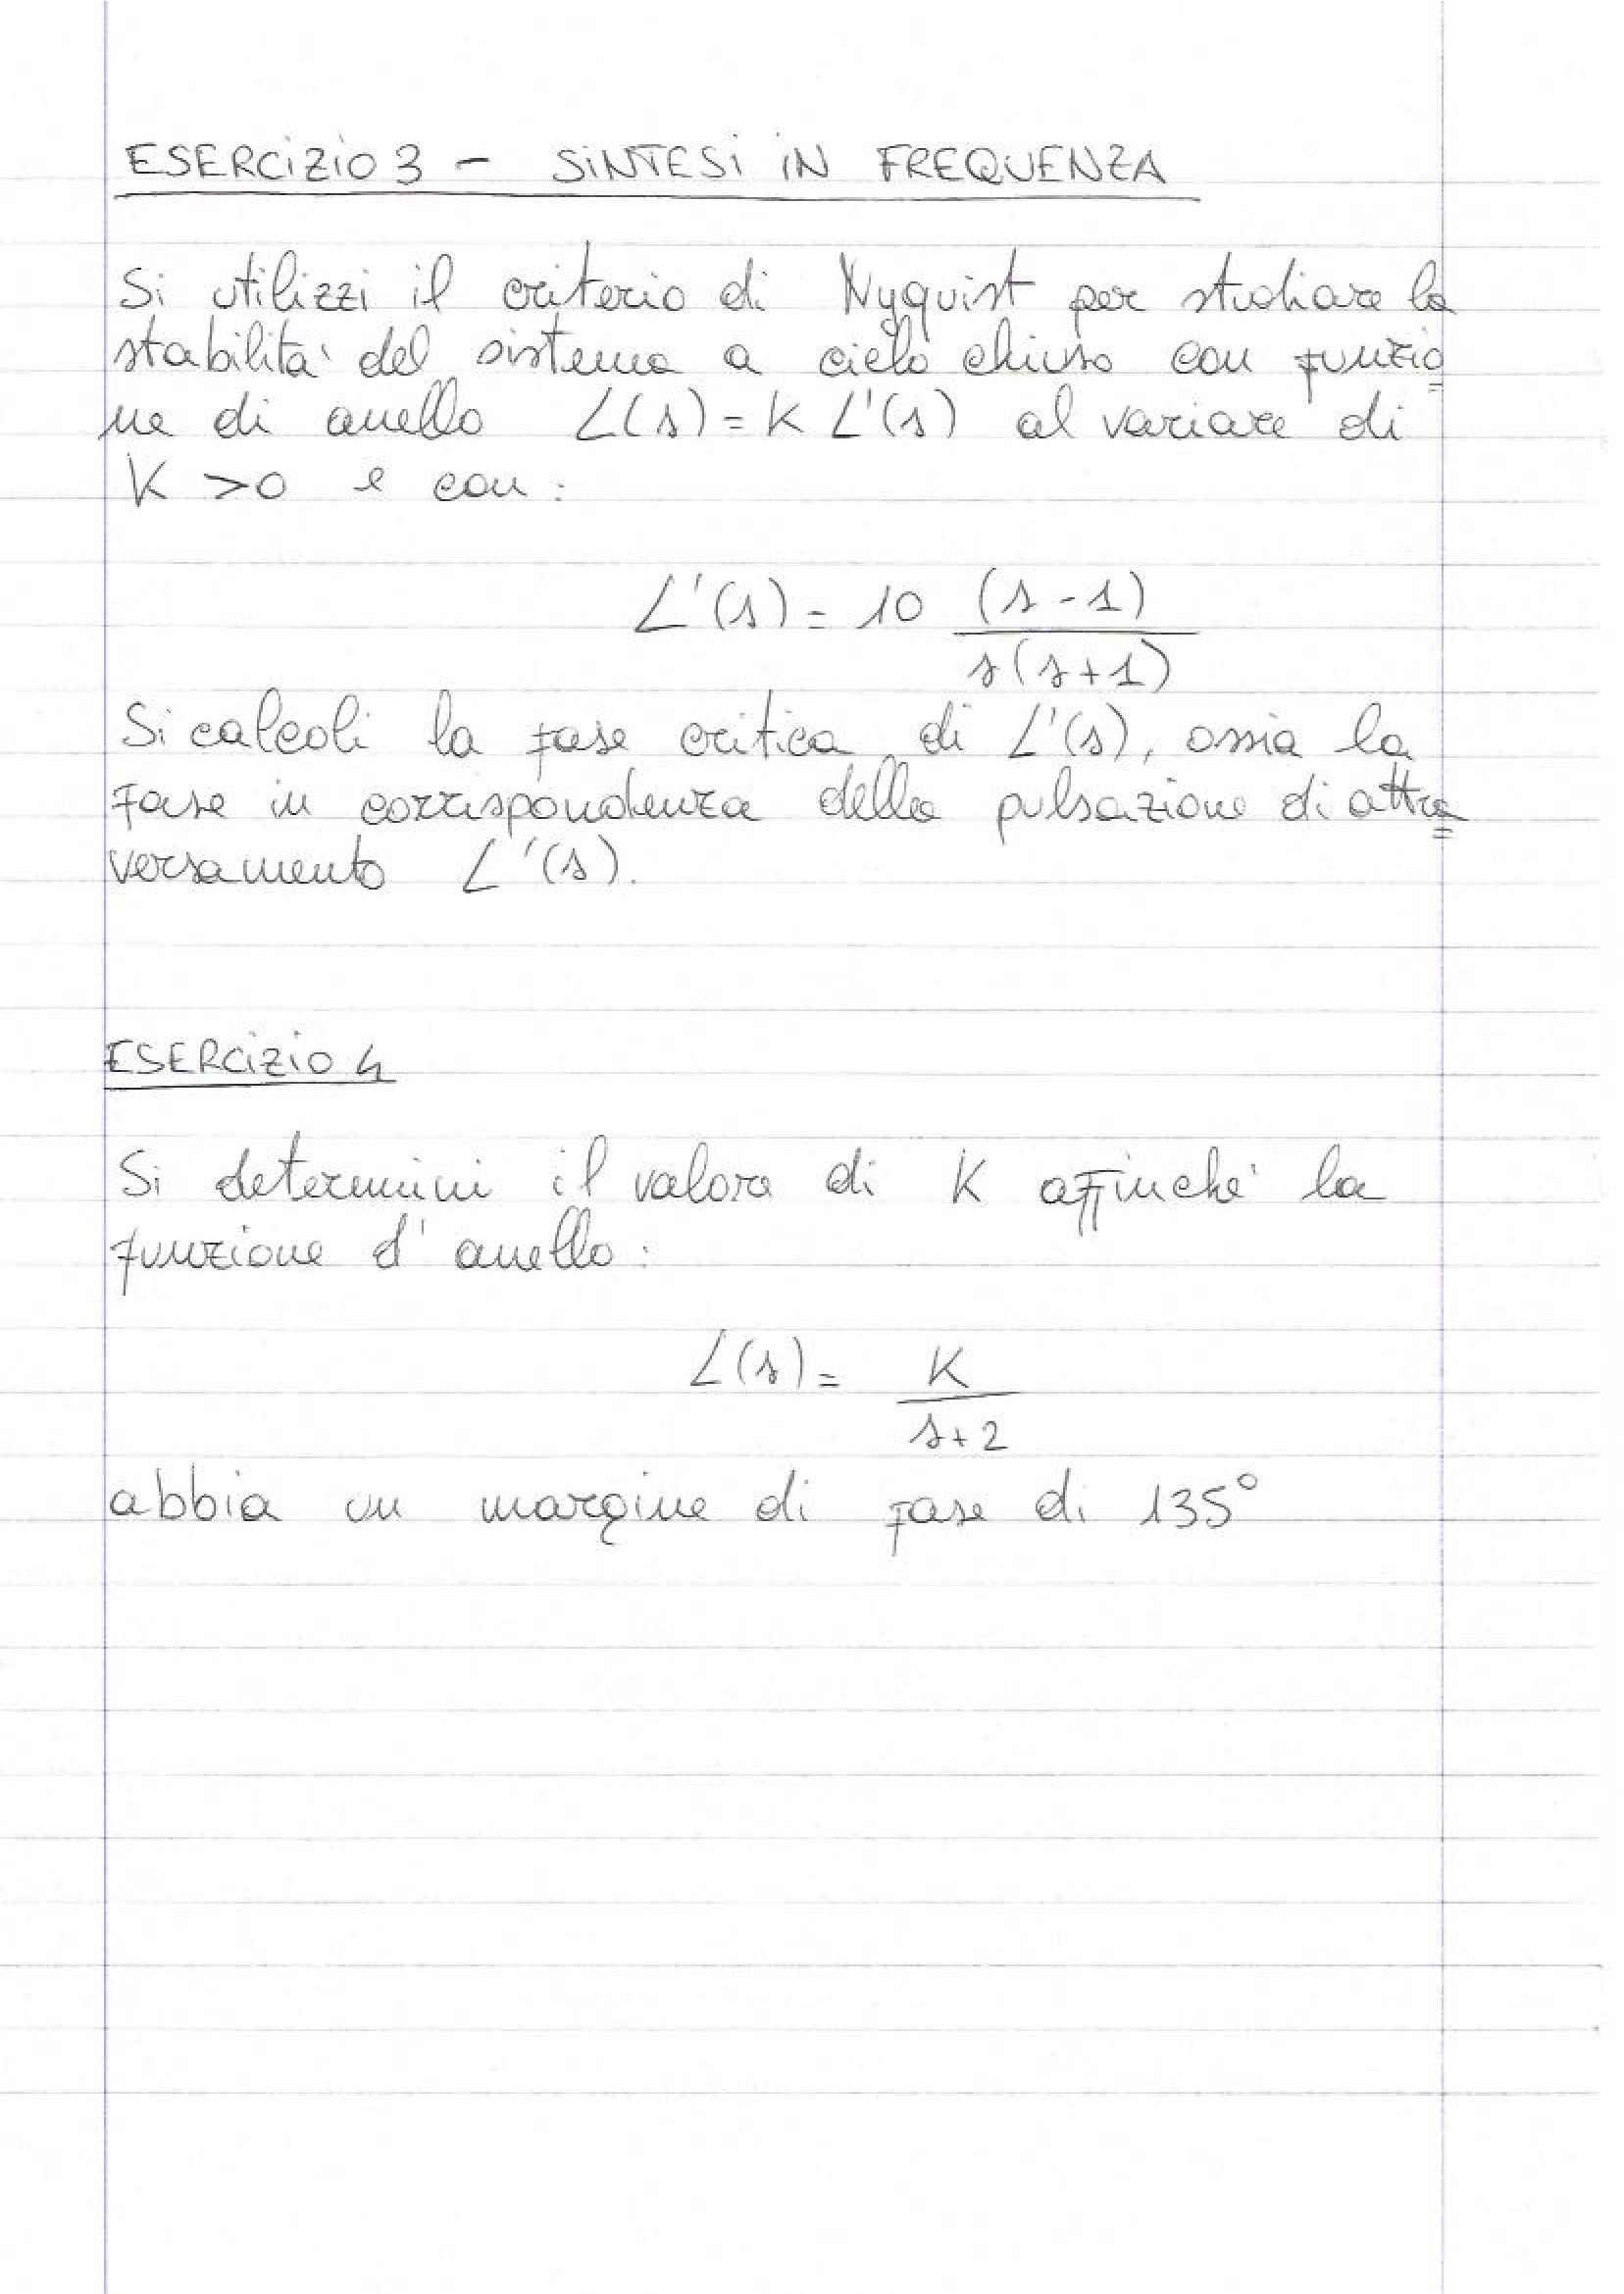 ESERCIZIO 3 - SINTESI IN FREQUENZA
Si utilizzi il criterio di Nyquist per studiare la
stabilità del sistema a ciclo chiuso con funzio
ne di anello L(s) = K L'(s) al variare di
K > 0 e con:
L'(s) = 10 (s-1)
s(s+1)
Si calcoli la fase critica di L'(s), ossia la
fase in corrispondenza della pulsazione di attra
versamento L'(s).
ESERCIZIO 4
Si determini il valore di K affinché la
funzione d'anello:
L(s) = K
s+2
abbia un margine di fase di 135°